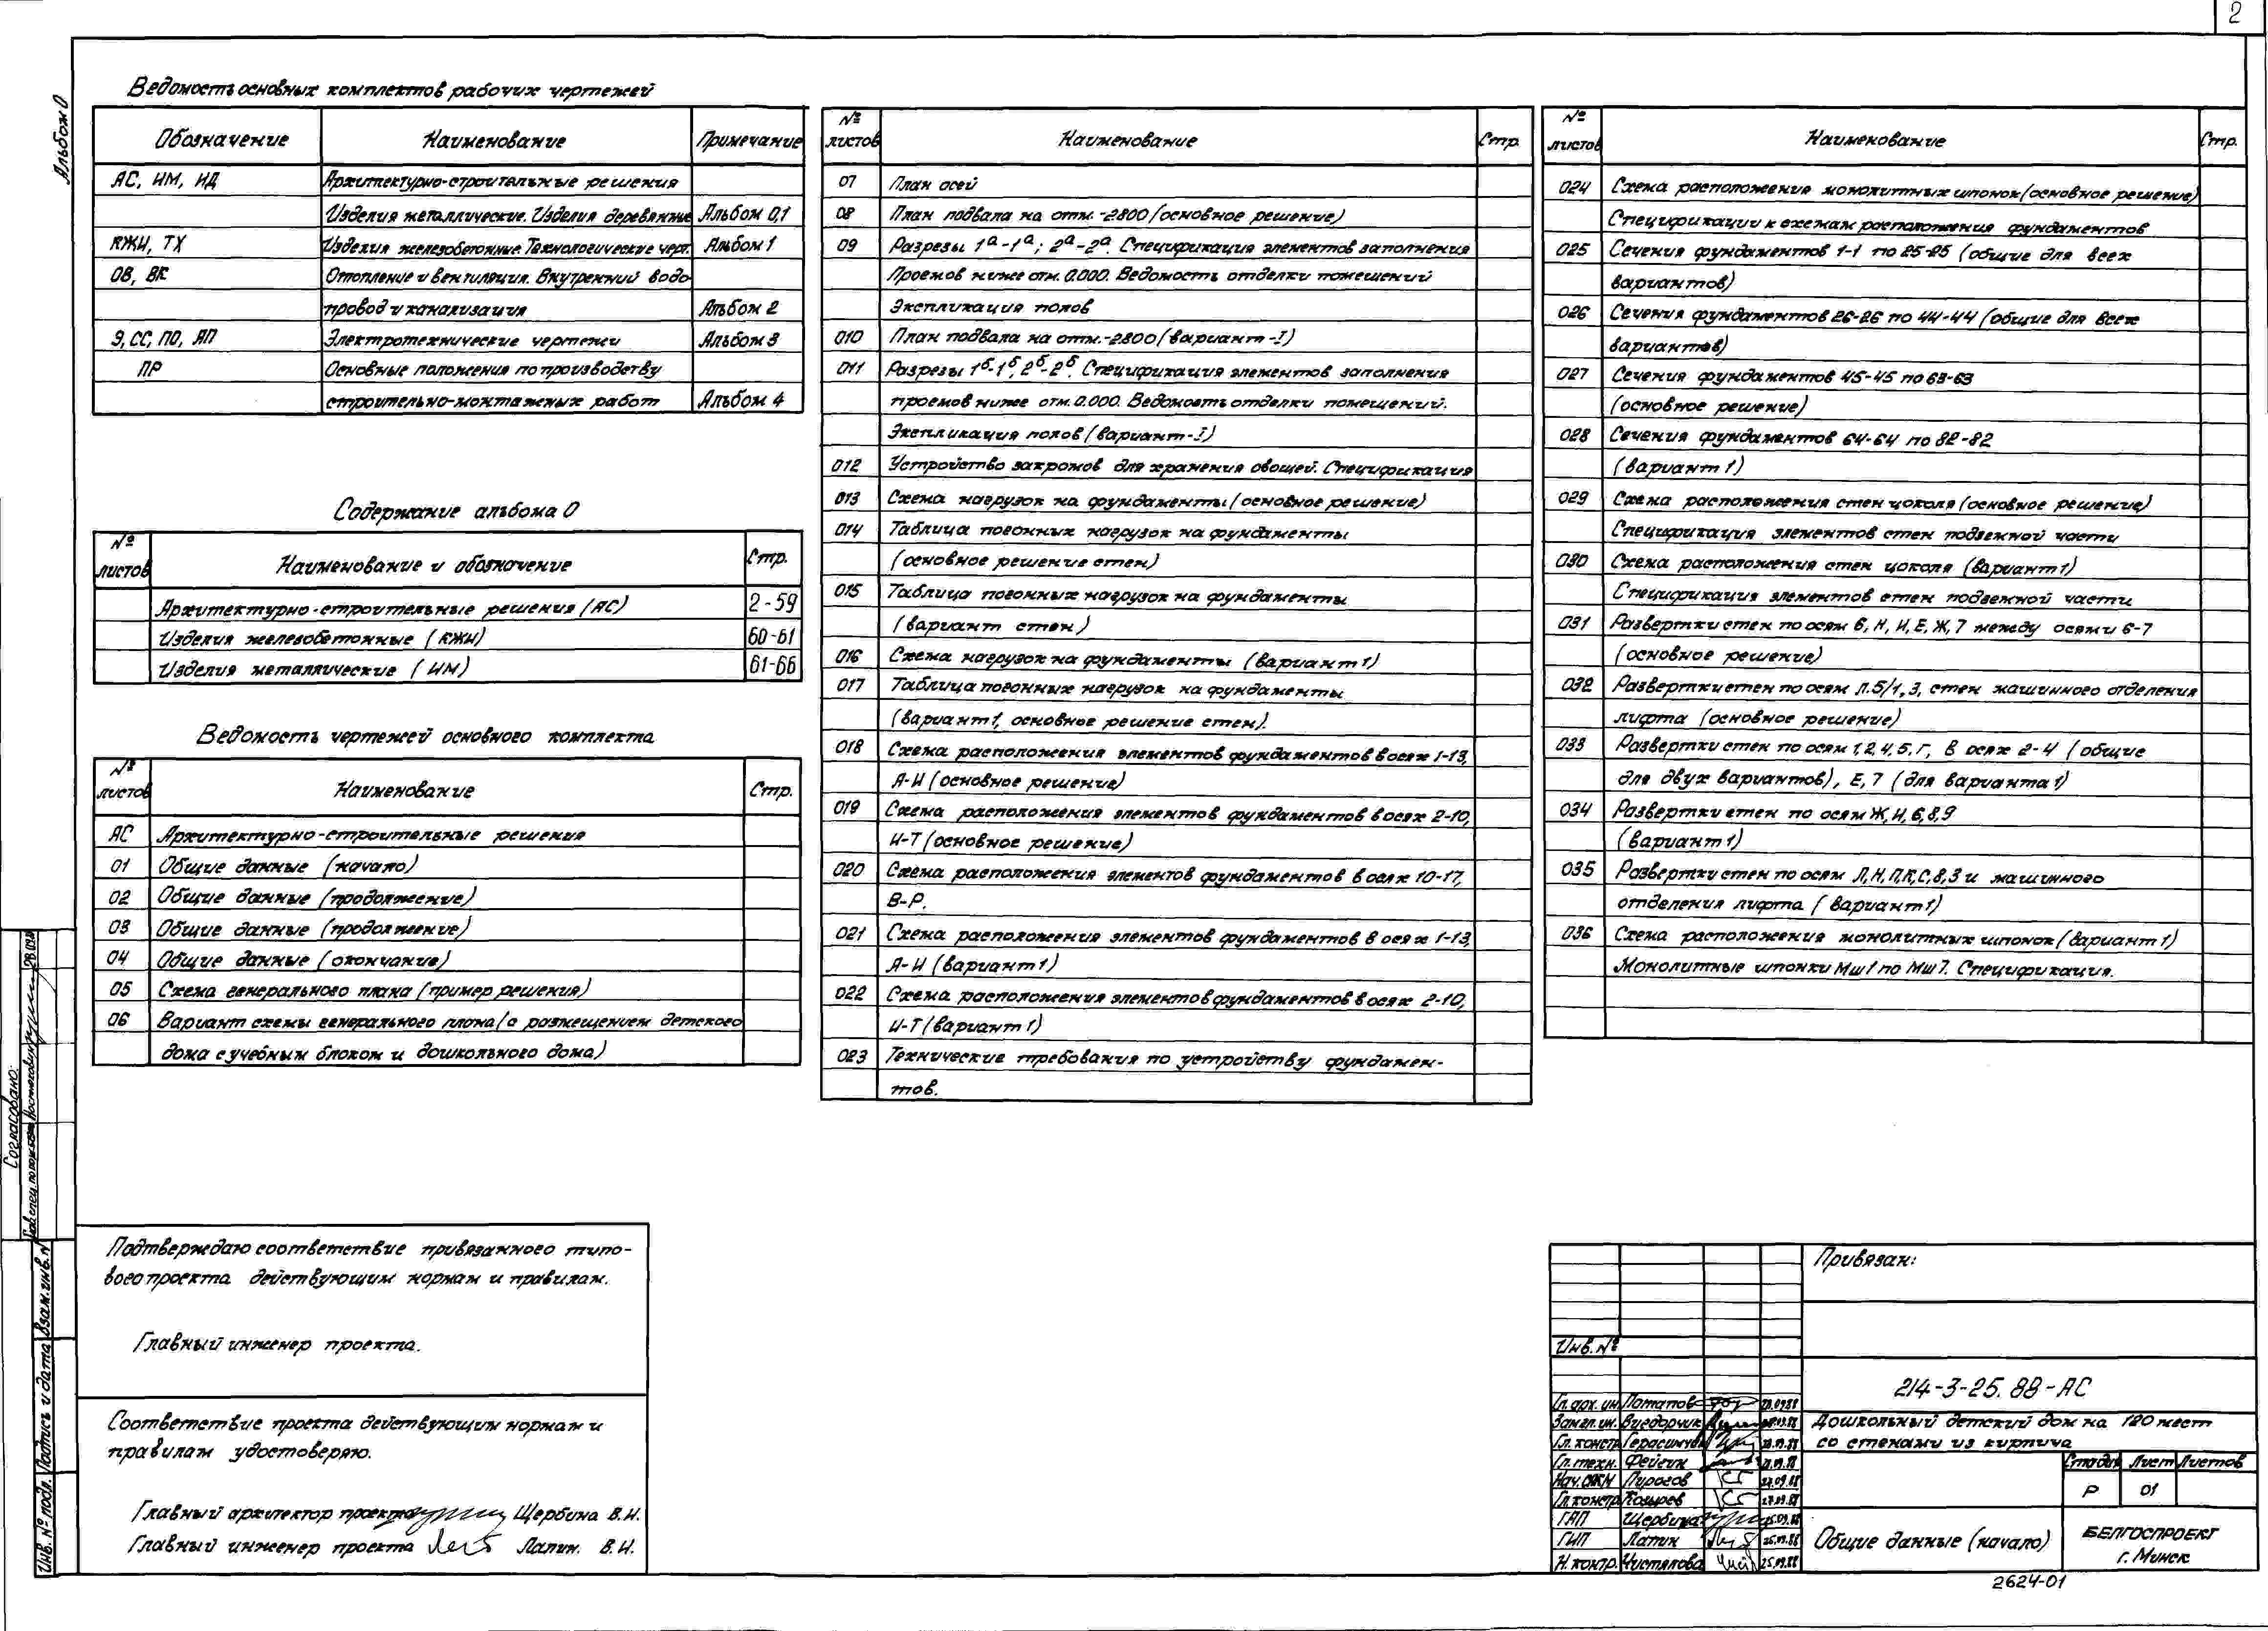 2
Альбом 0
Ведомость основных комплектов рабочих чертежей
Обозначение Наименование Примечание
АС, ИМ, ИД Архитектурно-строительные решения
Изделия металлические. Изделия деревянные Альбом 0,1
КЖИ, ТХ Изделия железобетонные. Технологические черт. Альбом 1
ОВ, ВК Отопление и вентиляция. Внутренний водо-
провод и канализация Альбом 2
Э, СС, ПО, АП Электротехнические чертежи Альбом 3
ПР Основные положения по производству
строительно-монтажных работ Альбом 4
Содержание альбома 0
№ листов Наименование и обозначение Стр.
Архитектурно-строительные решения (АС) 2-59
Изделия железобетонные (КЖИ) 60-61
Изделия металлические (ИМ) 61-66
Ведомость чертежей основного комплекта
№ листов Наименование Стр.
АС Архитектурно-строительные решения
01 Общие данные (начало)
02 Общие данные (продолжение)
03 Общие данные (продолжение)
04 Общие данные (окончание)
05 Схема генерального плана (пример решения)
06 Вариант схемы генерального плана (с размещением детского
дома с учебным блоком и дошкольного дома)
№ листов Наименование Стр.
07 План осей
08 План подвала на отм.-2800 (основное решение)
09 Разрезы 1а-1а; 2а-2а. Спецификация элементов заполнения
Проемов ниже отм. 0.000. Ведомость отделки помещений
Экспликация полов
010 План подвала на отм.-2800 (вариант-I)
011 Разрезы 1б-1б, 2б-2б. Спецификация элементов заполнения
проемов ниже отм. 0.000. Ведомость отделки помещений.
Экспликация полов (вариант-I)
012 Устройство закромов для хранения овощей. Спецификация
013 Схема нагрузок на фундаменты (основное решение)
014 Таблица погонных нагрузок на фундаменты
(основное решение стен)
015 Таблица погонных нагрузок на фундаменты
(вариант стен)
016 Схема нагрузок на фундаменты (вариант 1)
017 Таблица погонных нагрузок на фундаменты
(вариант 1, основное решение стен).
018 Схема расположения элементов фундаментов в осях 1-13,
А-И (основное решение)
019 Схема расположения элементов фундаментов в осях 2-10,
И-Т (основное решение)
020 Схема расположения элементов фундаментов в осях 10-17,
В-Р.
021 Схема расположения элементов фундаментов в осях 1-13,
А-И (вариант 1)
022 Схема расположения элементов фундаментов в осях 2-10,
И-Т (вариант 1)
023 Технические требования по устройству фундамен-
тов.
№ листов Наименование Стр.
024 Схема расположения монолитных шпонок (основное решение)
Спецификации к схемам расположения фундаментов
025 Сечения фундаментов 1-1 по 25-25 (общие для всех
вариантов)
026 Сечения фундаментов 26-26 по 44-44 (общие для всех
вариантов)
027 Сечения фундаментов 45-45 по 63-63
(основное решение)
028 Сечения фундаментов 64-64 по 82-82
(вариант 1)
029 Схема расположения стен цоколя (основное решение)
Спецификация элементов стен подземной части
030 Схема расположения стен цоколя (вариант 1)
Спецификация элементов стен подземной части
031 Развертки стен по осям 6, Н, И, Е, Ж, 7 между осями 6-7
(основное решение)
032 Развертки стен по осям Л.5/1, 3, стен машинного отделения
лифта (основное решение)
033 Развертки стен по осям 1, 2, 4, 5, Г, В осях 2-4 (общие
для двух вариантов), Е, 7 (для варианта 1)
034 Развертки стен по осям Ж, И, 6, 8, 9
(вариант 1)
035 Развертки стен по осям Л, Н, П, К, С, 8, 3 и машинного
отделения лифта (вариант 1)
036 Схема расположения монолитных шпонок (вариант 1)
Монолитные шпонки Мш1 по Мш7. Спецификация.
Подтверждаю соответствие привязанного типо-
вого проекта действующим нормам и правилам.
Главный инженер проекта.
Соответствие проекта действующим нормам и
правилам удостоверяю.
Главный архитектор проекта Щербина В.И.
Главный инженер проекта Лапин. В.И.
Согласовано:
Взам. инв. №
Подпись и дата
Инв. № подл.
Привязан:
Инв. №
214-3-25.88-АС
Гл. арх. ин. Потапов 28.09.88
Зам гл. ин. Видорчик
Гл. констр. Герасимчик 28.09.88
Гл. техн. Фейгин
Пирогов 27.09.88
Гл. констр. Козырев 27.09.88
ГАП Щербина 25.09.88
ГИП Лапин 25.09.88
Н. контр. Чистякова 25.09.88
Дошкольный детский дом на 120 мест
со стенами из кирпича
Стадия Лист Листов
Р 01
Общие данные (начало)
БЕЛГОСПРОЕКТ
г. Минск
2624-01